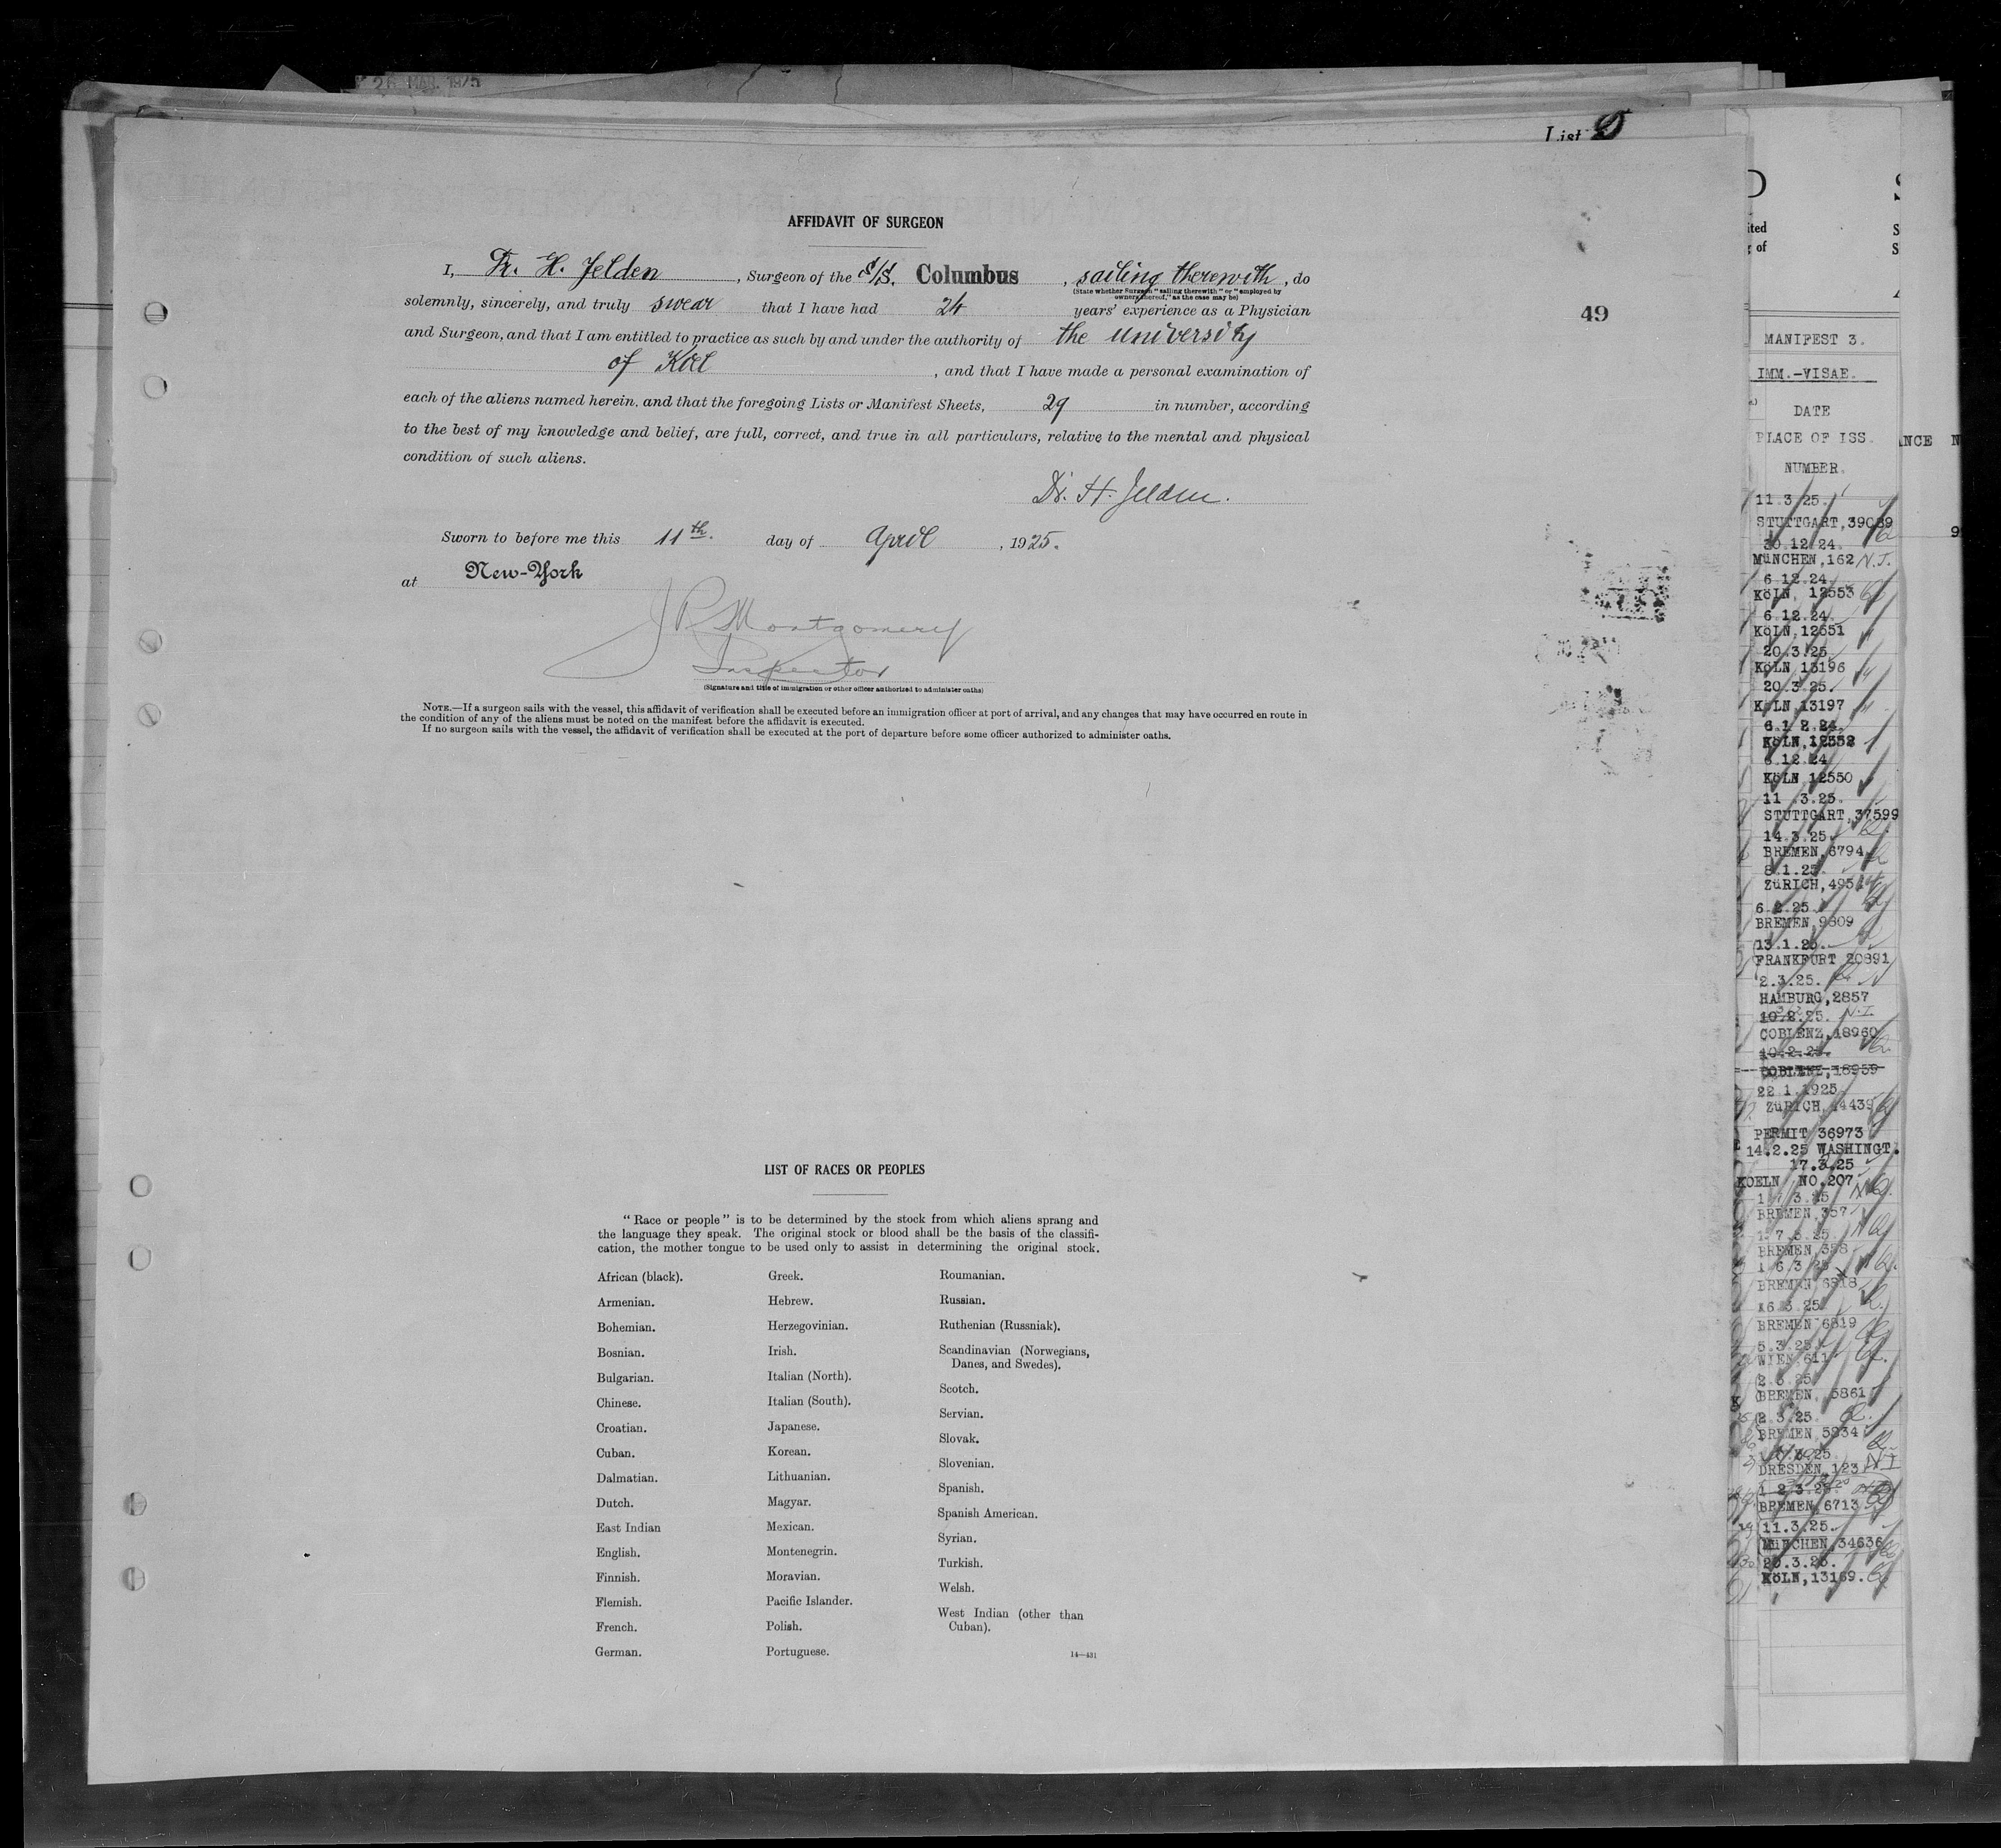 25 MAR. 1925
List D
AFFIDAVIT OF SURGEON
I, Dr. H. Jelden, Surgeon of the S/S. Columbus, sailing therewith, do
(State whether Surgeon "sailing therewith" or "employed by
owners thereof," as the case may be)
solemnly, sincerely, and truly swear that I have had 24 years' experience as a Physician
and Surgeon, and that I am entitled to practice as such by and under the authority of the university
of Kiel, and that I have made a personal examination of
each of the aliens named herein, and that the foregoing Lists or Manifest Sheets, 29 in number, according
to the best of my knowledge and belief, are full, correct, and true in all particulars, relative to the mental and physical
condition of such aliens.
Dr. H. Jelden.
Sworn to before me this 11th. day of April, 1925.
at New-York
J P Montgomery
Inspector
(Signature and title of immigration or other officer authorized to administer oaths)
NOTE.—If a surgeon sails with the vessel, this affidavit of verification shall be executed before an immigration officer at port of arrival, and any changes that may have occurred en route in
the condition of any of the aliens must be noted on the manifest before the affidavit is executed.
If no surgeon sails with the vessel, the affidavit of verification shall be executed at the port of departure before some officer authorized to administer oaths.
49
LIST OF RACES OR PEOPLES
"Race or people" is to be determined by the stock from which aliens sprang and
the language they speak. The original stock or blood shall be the basis of the classifi-
cation, the mother tongue to be used only to assist in determining the original stock.
African (black).
Armenian.
Bohemian.
Bosnian.
Bulgarian.
Chinese.
Croatian.
Cuban.
Dalmatian.
Dutch.
East Indian
English.
Finnish.
Flemish.
French.
German.
Greek.
Hebrew.
Herzegovinian.
Irish.
Italian (North).
Italian (South).
Japanese.
Korean.
Lithuanian.
Magyar.
Mexican.
Montenegrin.
Moravian.
Pacific Islander.
Polish.
Portuguese.
Roumanian.
Russian.
Ruthenian (Russniak).
Scandinavian (Norwegians,
Danes, and Swedes).
Scotch.
Servian.
Slovak.
Slovenian.
Spanish.
Spanish American.
Syrian.
Turkish.
Welsh.
West Indian (other than
Cuban).
14—431
MANIFEST 3.
IMM.-VISAE.
DATE
PLACE OF ISS.
NUMBER.
11.3.25.
STUTTGART,39089
30.12.24.
MüNCHEN,162 N.I.
6.12.24.
KöLN, 12553
6.12.24.
KöLN,12551
20.3.25.
KöLN,13196
20.3.25.
KöLN,13197
6.12.24.
KöLN,12552
6.12.24
KöLN,12550
11.3.25.
STUTTGART,37599
14.3.25.
BREMEN,6794
8.1.25.
ZüRICH,495
6.2.25.
BREMEN,9809
13.1.25.
FRANKFURT 20891
2.3.25.
HAMBURG,2857
10.2.25. N.I.
COBLENZ,18960
10.2.25.
COBLENZ,18959
22.1.1925
ZüRICH,4439
PERMIT 36973
14.2.25 WASHINGT.
17.3.25
KOELN NO.207
17.3.25
BREMEN,357
17.3.25.
BREMEN,358
16.3.25
BREMEN 6818
16.3.25
BREMEN 6819
5.3.25.
WIEN,611
2.3.25
BREMEN, 5861
2.3.25
BREMEN,5834
DRESDEN,123 N.I.
12.3.25.
BREMEN,6713
11.3.25.
MüNCHEN,34636
20.3.25.
KöLN,13169.